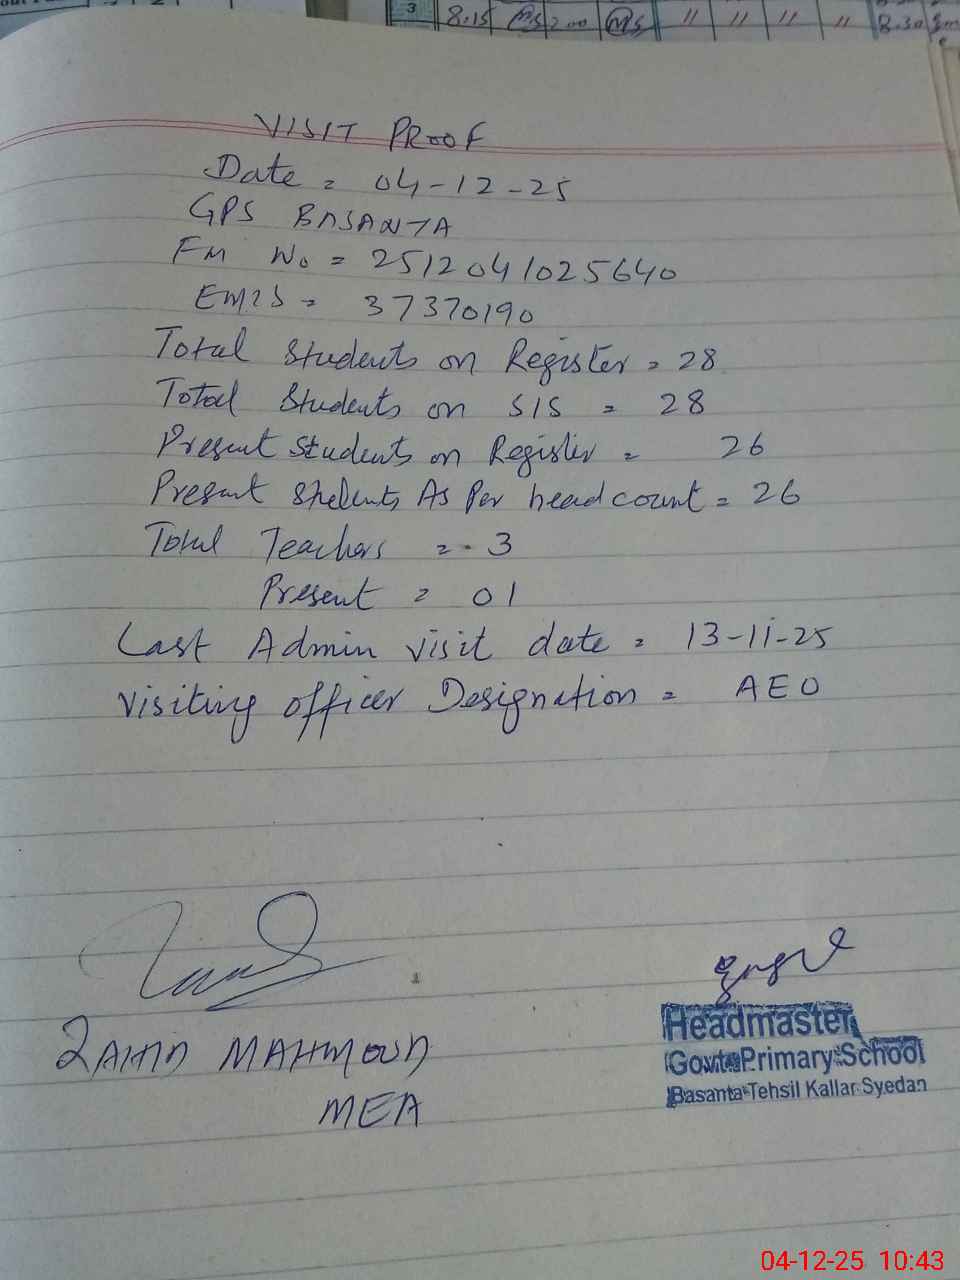 3 8.15 2.00 " " " " 8.30
VISIT PROOF
Date = 04-12-25
GPS BASANTA
FM No = 2512041025640
EMIS = 37370190
Total Students on Register = 28
Total Students on SIS = 28
Present Students on Register = 26
Present Students As Per head count = 26
Total Teachers = 3
Present = 01
Last Admin visit date = 13-11-25
Visiting officer Designation = AEO
ZAHID MAHMOOD
MEA
Headmaster
Govt. Primary School
Basanta Tehsil Kallar Syedan
04-12-25 10:43